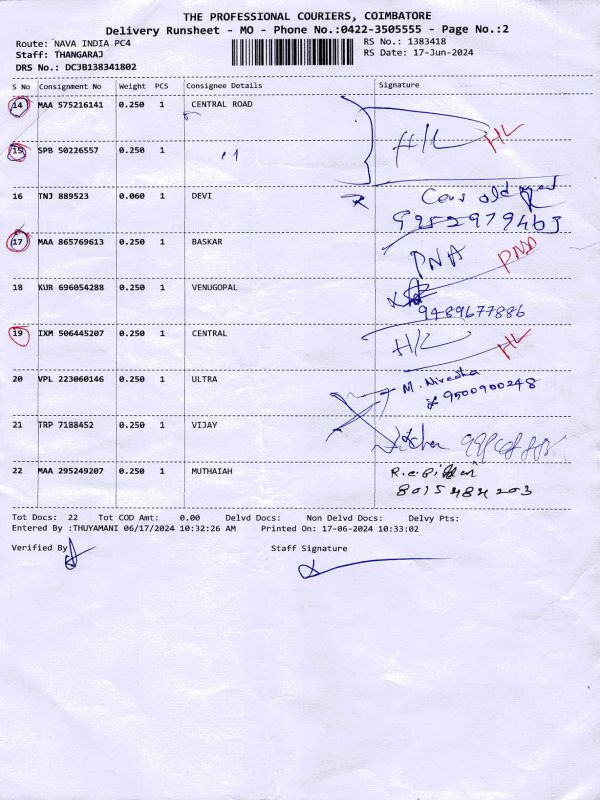 THE PROFESSIONAL COURIERS, COIMBATORE
Delivery Runsheet - MO - Phone No.:0422-3505555 - Page No.:2
Route: NAVA INDIA PC4 RS No.: 1383418
Staff: THANGARAJ RS Date: 17-Jun-2024
DRS No.: DCJB138341802
S No Consignment No Weight PCS Consignee Details Signature
14 MAA 575216141 0.250 1 CENTRAL ROAD
H/L HL
15 SPB 50226557 0.250 1 ''
16 TNJ 889523 0.060 1 DEVI
9952979463
17 MAA 865769613 0.250 1 BASKAR PNA PNA
18 KUR 696054288 0.250 1 VENUGOPAL
9489677886
19 IXM 506445207 0.250 1 CENTRAL H/L HL
20 VPL 223060146 0.250 1 ULTRA M. Nivedha
9500900248
21 TRP 7188452 0.250 1 VIJAY
22 MAA 295249207 0.250 1 MUTHAIAH
8015484203
Tot Docs: 22 Tot COD Amt: 0.00 Delvd Docs: Non Delvd Docs: Delvy Pts:
Entered By :THUYAMANI 06/17/2024 10:32:26 AM Printed On: 17-06-2024 10:33:02
Verified By Staff Signature